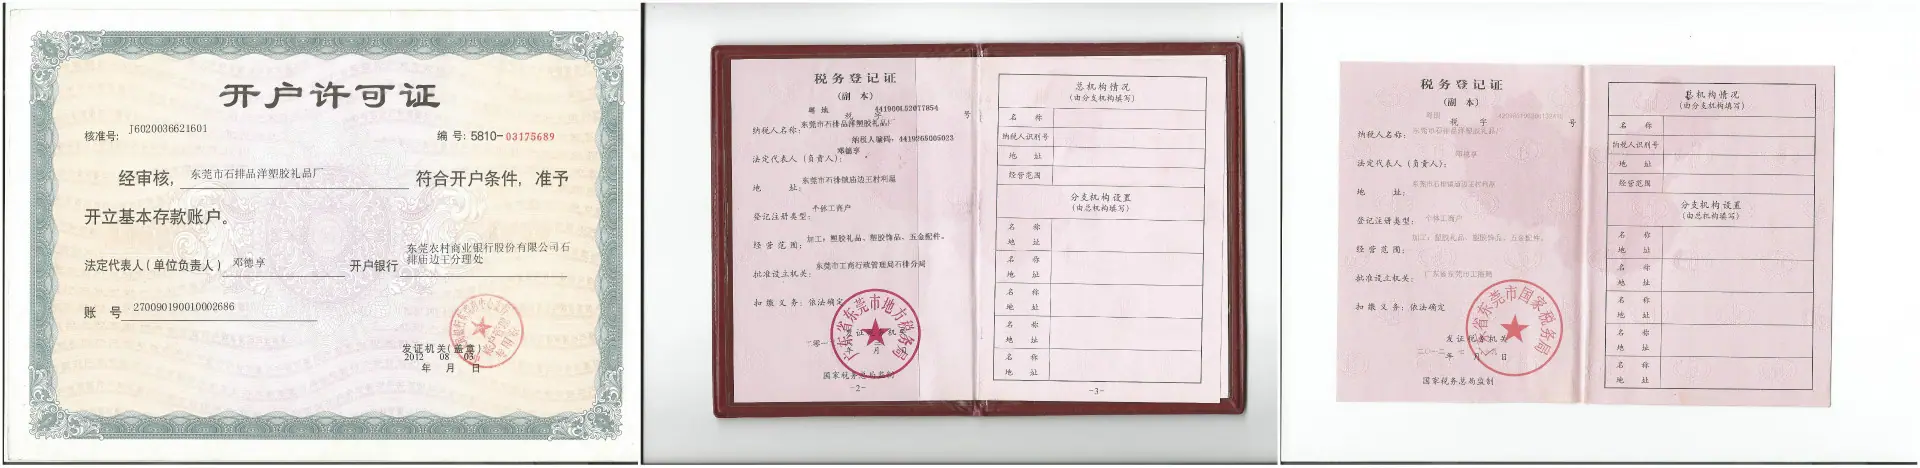 开户许可证
核准号: J6020036621601
编号: 5810-03175689
经审核, 东莞市石排品洋塑胶礼品厂 符合开户条件, 准予
开立基本存款账户。
法定代表人(单位负责人) 邓德享 开户银行 东莞农村商业银行股份有限公司石
排庙边王分理处
账 号 270090190010002686
发证机关(盖章)
2012 08 03
年 月 日
税务登记证
(副 本)
粤地 税 字 441900L52077854 号
纳税人名称: 东莞市石排品洋塑胶礼品厂
纳税人编码: 4419265005023
法定代表人(负责人): 邓德享
地 址: 东莞市石排镇庙边王村利屋
登记注册类型: 个体工商户
经营范围: 加工: 塑胶礼品、塑胶饰品、五金配件。
批准设立机关: 东莞市工商行政管理局石排分局
扣缴义务: 依法确定
广东省东莞市地方税务局
发证税务机关
年 月 日
国家税务总局监制
-2-
总机构情况
(由分支机构填写)
名 称
纳税人识别号
地 址
经营范围
分支机构设置
(由总机构填写)
名 称
地 址
名 称
地 址
名 称
地 址
名 称
地 址
名 称
地 址
-3-
税务登记证
(副 本)
粤国 税 字 号
纳税人名称: 东莞市石排品洋塑胶礼品厂
法定代表人(负责人): 邓德享
地 址: 东莞市石排镇庙边王村利屋
登记注册类型: 个体工商户
经营范围: 加工: 塑胶礼品、塑胶饰品、五金配件。
批准设立机关: 广东省东莞市工商局
扣缴义务: 依法确定
广东省东莞市国家税务局
发证税务机关
年 月 日
国家税务总局监制
总机构情况
(由分支机构填写)
名 称
纳税人识别号
地 址
经营范围
分支机构设置
(由总机构填写)
名 称
地 址
名 称
地 址
名 称
地 址
名 称
地 址
名 称
地 址